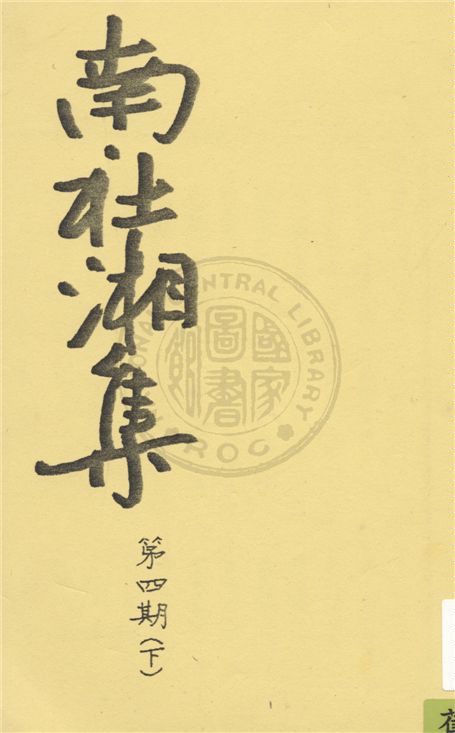 南社湘集
第四期(下)
NATIONAL CENTRAL LIBRARY
R.O.C
國家圖書館